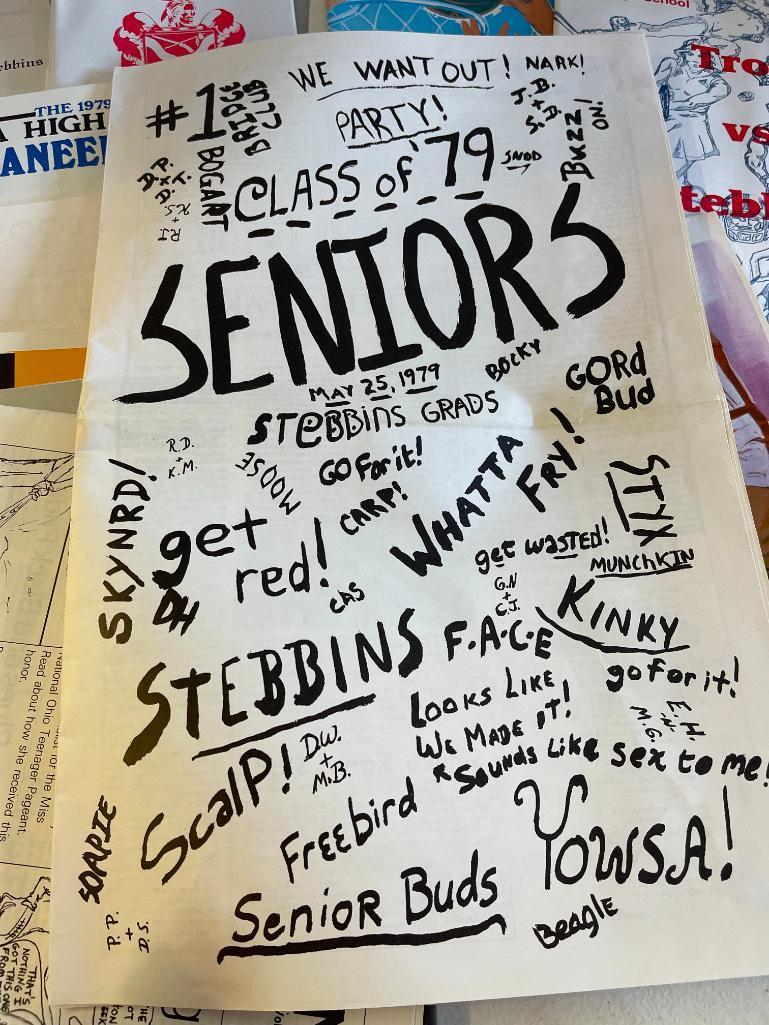 ebbins
THE 1979
A HIGH
ANEE
School
Tro
vs
tebb
WE WANT OUT!
NARK!
#1
BRIDGE CLUB
PARTY!
J.B.
+
S.D.
BUZZ ON!
BOGART
CLASS of '79
SNOD
K.S
+
R.J
SENIORS
MAY 25, 1979
BOCKY
GORd
Bud
STeBBiNS GRADS
R.D.
+
K.M.
MOOSE
GO For it!
SKYNRD!
CARP!
WHATTA
FRY!
STYX
get
red!
get wasted!
MUNChKIN
CAS
G.N
+
C.J.
KINKY
STEBBINS
F.A.C.E
go for it!
LOOKS LIKE
WE MADE IT!
E.H.
M.G.
SOUNDS LIKE sex to me!
ScalP!
D.W.
+
M.B.
Freebird
SOAPIE
YOWSA!
SenioR Buds
Beagle
P.P.
+
D.S.
National Ohio Teenager Pageant.
Read about how she received this
honor.
for the Miss
THAT'S
NOTHING I
GOT THIS ONE
FROM